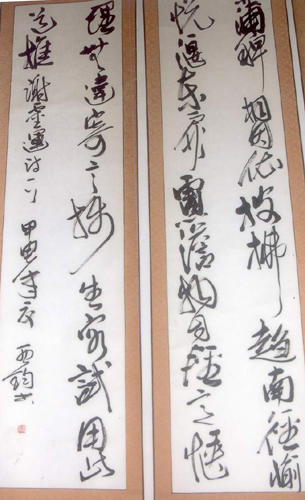 蒲稗相因依披拂趨南徑愉
悦偃東扉慮澹物自輕意愜
理無違寄言攝生客試用此
道推謝靈運詩一首甲申年